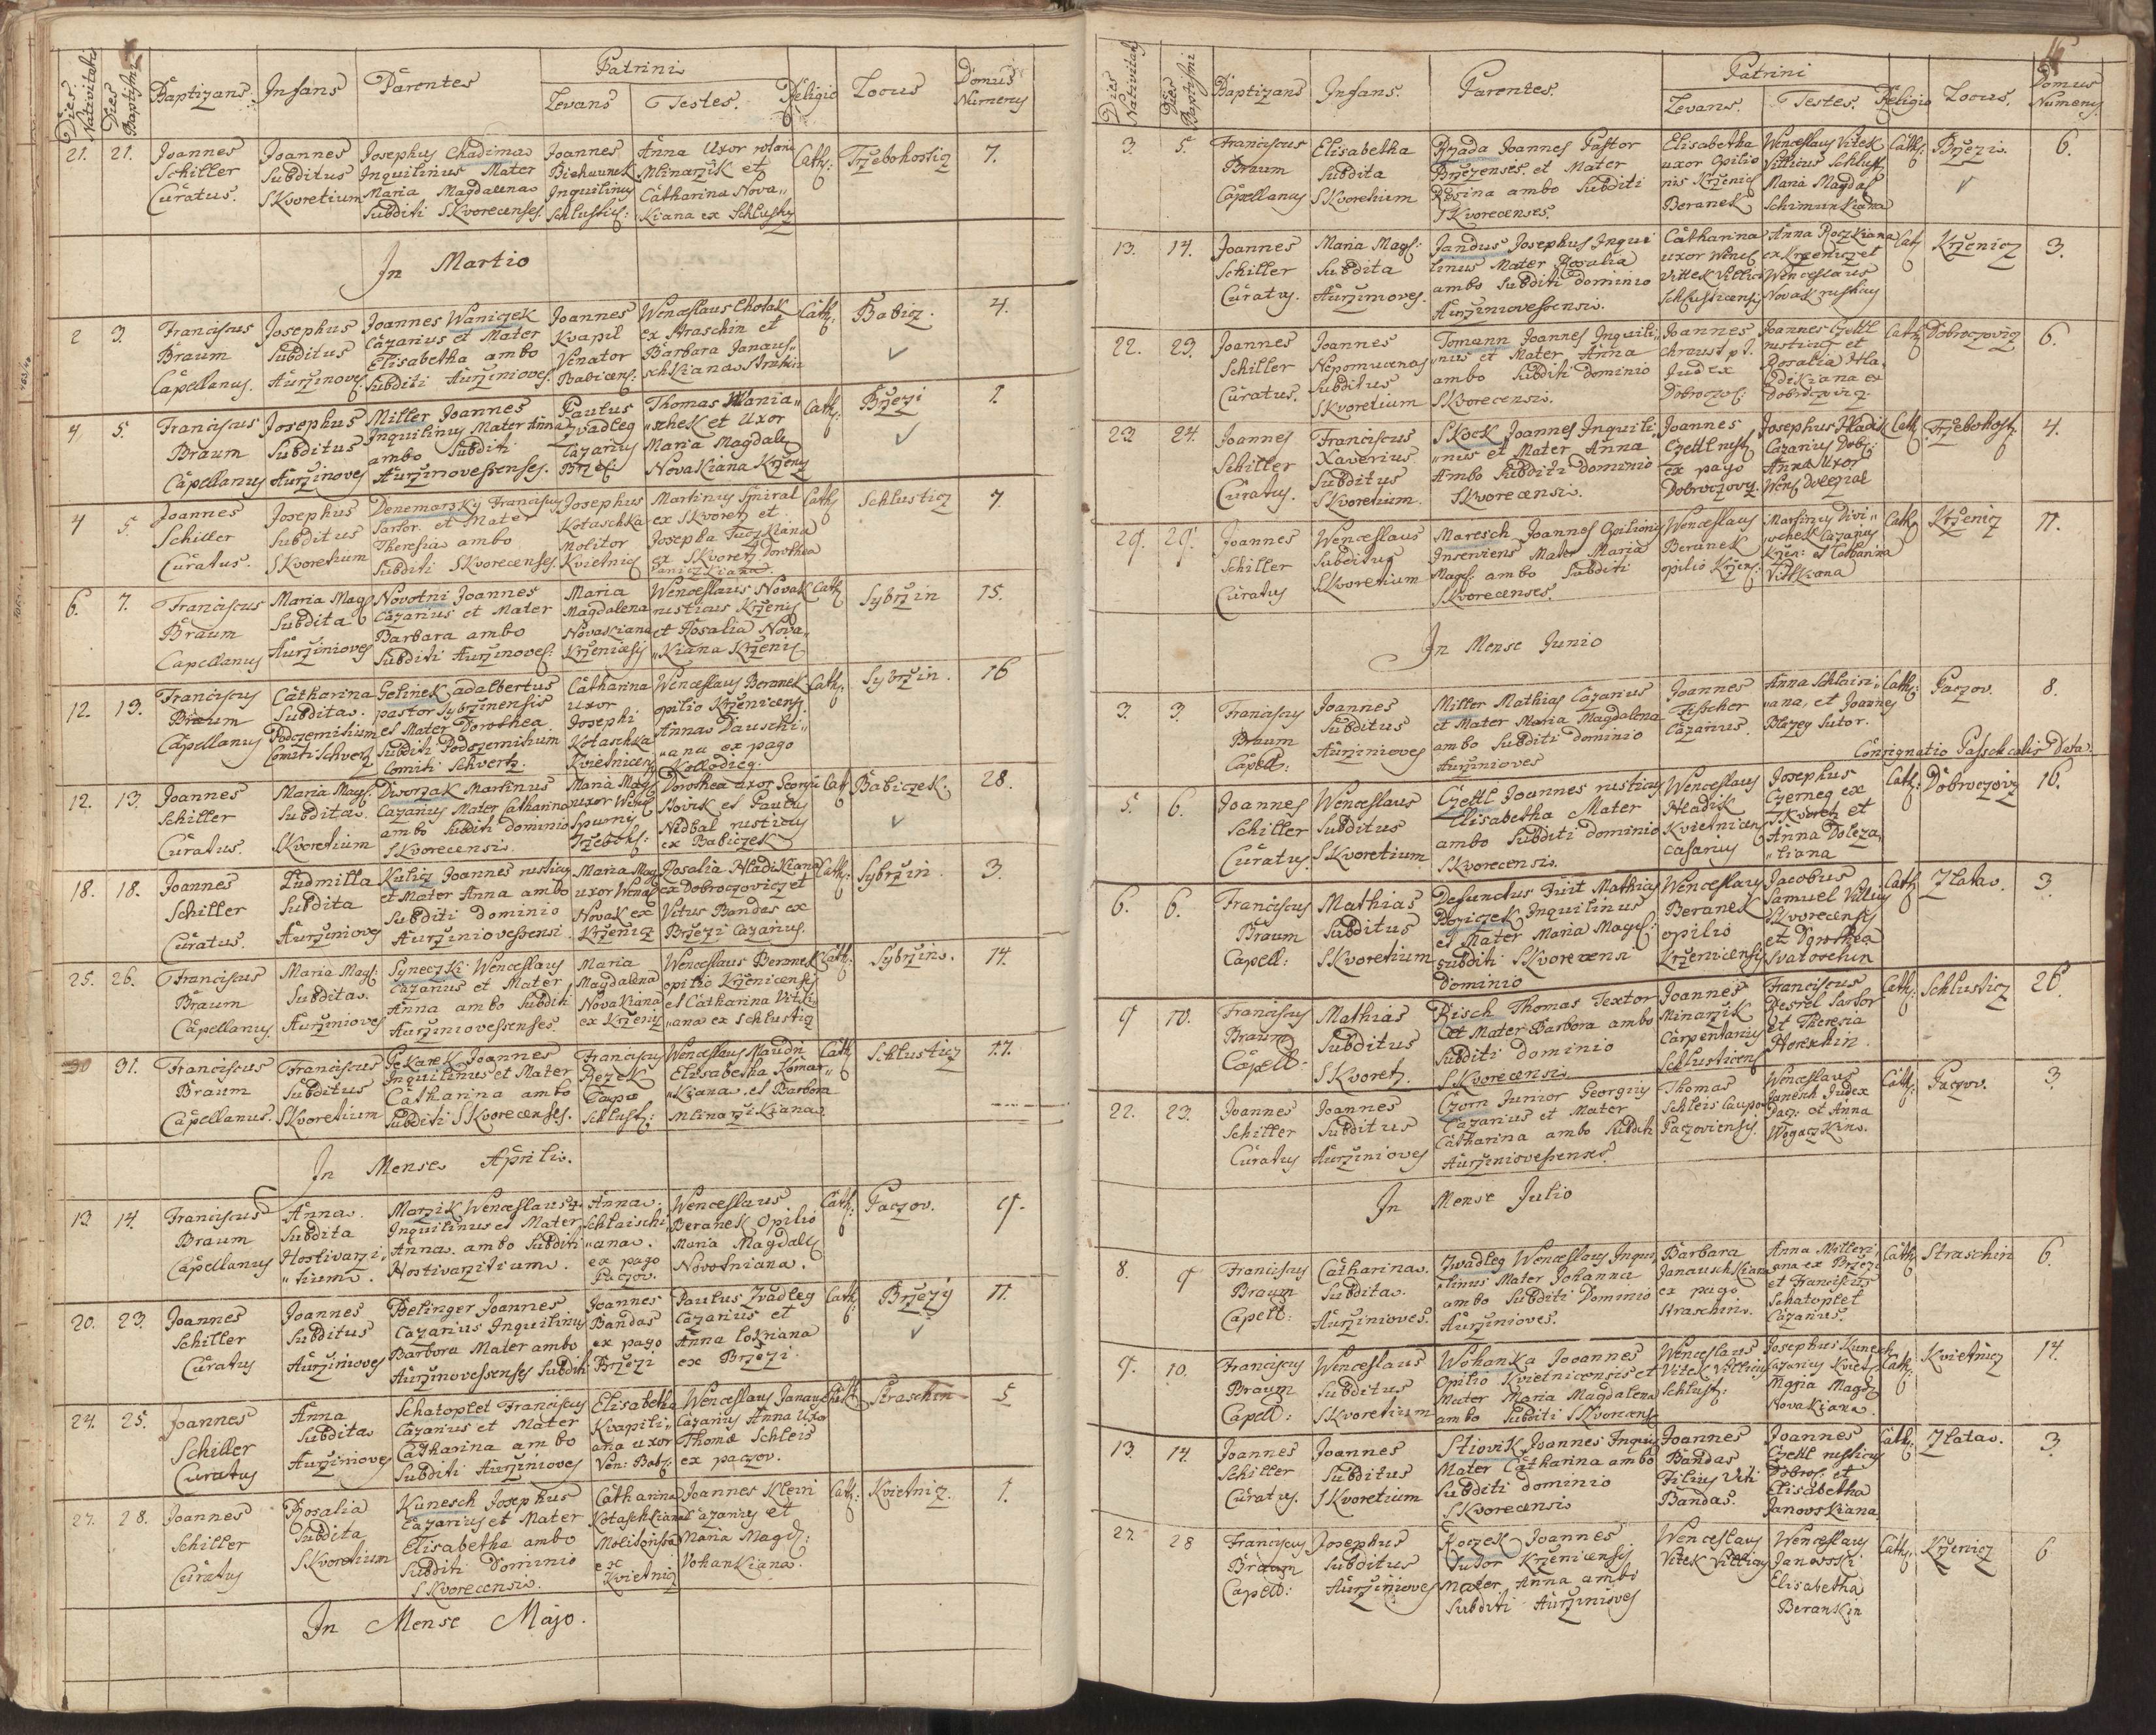 Dies Nativitatis
Dies Baptismi
Baptizans
Infans
Parentes
Patrini
Levans
Testes.
Religio
Locus
Domus Numerus
21. 21. Joannes Joannes Josephus Chadima Joannes Anna Uxor Cath: Trzebohostiz 7.
Schiller Subditus Inquilinus Mater Mlinarzik et
Curatus. Skvoretium Maria Magdalena Inquilinus Catharina Nova„
Subditi Skvorecenses. Schlustic: kiana ex Schlustiz
In Martio
2 3. Franciscus Josephus Joannes Waniczek Joannes Wenceslaus Cath: Babicz. 4.
Braum Subditus Cazarius et Mater Kvapil ex Straschin et
Capellanus. Aurzinoves. Elisabetha ambo Venator Barbara Janaus„
Subditi Aurzinioves. Babicens: schkiana
4 5. Franciscus Josephus Miller Joannes Paulus Thomas Wania„ Cath: Brzezi 2
Braum Subditus Inquilinus Mater Anna Zvadleg „schek et Uxor
Capellanus Aurzinoves ambo Subditi Cazarius Maria Magdal:
Aurzinovessenses. Brzez: Novakiana Krzeniz
4 5. Joannes Josephus Denemarsky Franciscus Josephus Martinus Smiral Cath Schlusticz 7.
Schiller Subditus Sartor et Mater Kotaschka ex Skvorez et
Curatus. Skvoretium Theresia ambo Molitor Josepha
Subditi Skvorecenses. Kvietnic: ex Skvorez Dorothea
6. 7. Franciscus Maria Mag: Novotni Joannes Maria Wenceslaus Novak Cath Sybrzin 15.
Braum Subdita Cazarius et Mater Magdalena rusticus Krzeniz
Capellanus Aurzinioves Barbara ambo Novakiana et Rosalia Nova„
Subditi Aurzinoves: „kiana Krzeniz
12. 13. Franciscus Catharina Gelinek adalbertus Catharina Wenceslaus Beranek Cath: Sybrzin. 16
Braum Subdita pastor Sybrzinensis Uxor opilio Krzenicens:
Capellanus Podczernitium et Mater Dorothea Josephi Anna Dauschi„
Comiti Schvertz Subditi Podczernitium Kotaschka „ana ex pago
Comiti Schvertz. Kvietnicens Kollodieg.
12. 13. Joannes Maria Mag: Dworzak Martinus Maria Mag: Dorothea uxor Georgii Cath Babiczek. 28.
Schiller Subdita Cazarius Mater Catharina uxor Wenc: et Paulus
Curatus. Skvoretium ambo Subditi dominio Spurnij Nedbal rusticus
Skvorecensis. Trzeboh: ex Babiczek
18. 18. Joannes Ludmilla Kulicz Joannes rusticus Maria Mag: Rosalia Hladikiana Cath: Sybrzin. 3.
Schiller Subdita et Mater Anna ambo uxor Wenc: ex Dobroczovicz et
Curatus. Aurzinioves Subditi dominio Novak ex Vitus Bandas ex
Aurziniovessensi. Krzenicz Brzezi Cazarius.
25. 26. Franciscus Maria Mag: Syneczki Wenceslaus Maria Wenceslaus Beranek Cath: Sybrzin. 14.
Braum Subdita. Cazarius et Mater Magdalena opilio Krzenicensis
Capellanus. Aurzinioves Anna ambo Subditi Novakiana et Catharina Vitki„
Aurziniovessenses. ex Krzeniz „ana ex Schlustiz
30 31. Franciscus Franciscus Pekarek Joannes Franciscus Wenceslaus Maudri Cath Schlusticz 17.
Braum Subditus Inquilinus et Mater Rezek Elisabetha Komar„
Capellanus. Skvoretium Catharina ambo Caupo „kiana et Barbora
Subditi Skvorecenses. Schlust: Mlinarzikiana.
In Mense Aprilis.
13 14. Franciscus Anna. Marzik Wenceslaus Anna. Wenceslaus Cath: Paczov. 9.
Braum Subdita Inquilinus et Mater Schlaischi„ Beranek Opilio
Capellanus Hostivarzi„ Anna ambo Subditi „ana. Maria Magdal:
„tium. Hostivarzitium. ex pago Paczov. Novotniana.
20. 23. Joannes Joannes Belinger Joannes Joannes Paulus Zvadleg Cath: Brzezy 11.
Schiller Subditus Cazarius Inquilinus Bandas Cazarius et
Curatus Aurzinioves Barbora Mater ambo ex pago Anna
Aurzinovessenses Subditi Brzezi ex Brzezi.
24. 25. Joannes Anna Schatoplet Franciscus Elisabetha Wenceslaus Janausch Cath Straschin 5
Schiller Subdita Cazarius et Mater Kvapili„ Cazarius Anna Uxor
Curatus Aurzinioves Catharina ambo ana uxor Thomae Schleis
Subditi Aurzinioves Ven: Bab: ex paczov.
27. 28. Joannes Rosalia Kunesch Josephus Catharina Joannes Klein Cath: Kvietnicz. 1.
Schiller Subdita Cazarius et Mater Kotaschkiana Cazarius et
Curatus Skvoretium Elisabetha ambo Maria Magd:
Subditi Dominio ex Vohankiana.
Skvorecensis. Kvietniz
In Mense Majo.
16
Dies Nativitatis
Dies Baptismi
Baptizans
Infans.
Parentes.
Patrini
Levans.
Testes.
Religio
Locus.
Domus Numerus.
3. 5. Franciscus Elisabetha Joannes Pastor Elisabetha Wenceslaus Vitek Cath: Brzezi. 6.
Braum Subdita Brzezensis et Mater uxor Opilio Villicus Schlust
Capellanus Skvoretium Rosina ambo Subditi nis Krzenic Maria Magdal
Skvorecenses. Beranek Schimunkiana
13. 14. Joannes Maria Mag: Jandus Josephus Inqui Catharina Anna Roczkiana Cath Krzenicz 3.
Schiller Subdita linus Mater Rosalia uxor Wenc: ex Krzenicz et
Curatus. Aurzinioves. ambo Subditi dominio Vittek Villici Wenceslaus
Aurziniovessensis. Schlusticensis Novak rusticus
22. 23. Joannes Joannes Tomann Joannes Inquili„ Joannes Joannes Czettl Cath: Dobroczovicz 6.
Schiller Nepomucenus „nus et Mater Anna Chraust p.t. rusticus et
Curatus. Subditus ambo Subditi dominio Judex Rosalia Hla„
Skvoretium Skvorecensis. Dobroczov: dikiana ex Dobroczovicz.
23 24. Joannes Franciscus Skock Joannes Inquili„ Joannes Josephus Hladik Cath Trzebohost. 4.
Schiller Xaverius „nus et Mater Anna Czettl rust: Cazarius Dobr:
Curatus. Subditus Ambo Subditi dominio ex pago Anna Uxor
Skvoretium. Skvorecensis. Dobroczovicz. Wenc: Dolezal
29. 29. Joannes Wenceslaus Maresch Joannes Opilionis Wenceslaus Martinus Divi„ Cath: Krzenicz 11.
Schiller Subditus Inserviens Mater Maria Beranek „schek Cazarius
Curatus Skvoretium Magd: ambo Subditi opilio Krzen: Krzen: et Catharina
Skvorecenses. Vitkiana
In Mense Junio
3. 3. Franciscus Joannes Miller Mathias Cazarius Joannes Anna Schlaisi„ Cath: Paczov. 8.
Braum Subditus et Mater Maria Magdalena Fischer „ana, et Joannes
Capell: Aurzinioves ambo Subditi dominio Cazarius. Sutor.
Aurzinioves Consignatio Paschcalis Data.
5. 6. Joannes Wenceslaus Czettl Joannes rusticus Wenceslaus Josephus Cath: Dobroczoviz 16.
Schiller Subditus Elisabetha Mater Hladik Czerneg ex
Curatus. Skvoretium ambo Subditi dominio Kvietnicen Skvorez et
Skvorecensis. casarius Anna Doleza„
„liana
6. 6. Franciscus Mathias Defunctus Fuit Mathias Wenceslaus Jacobus Cath: Zlata. 3.
Braum Subditus Inquilinus Beranek Samuel
Capell: Skvoretium et Mater Maria Magd: opilio Skvorecensis
Subditi Skvorecensi Krzenicensis et Dorothea
Dominio Svatoschin
9 10. Franciscus Mathias Risch Thomas Textor Joannes Franciscus Cath: Schlusticz 26.
Braum Subditus et Mater Barbora ambo Minarzik Sartor
Capell: Skvorez. Subditi dominio Carpentarius et Theresia
Skvorecensis. Schlusticens
22. 23. Joannes Joannes Czorn Junior Georgius Thomas Wenceslaus Cath: Paczov. 3.
Schiller Subditus Cazarius et Mater Schleis Caupo Janesch Judex
Curatus Aurzinioves Catharina ambo Subditi Paczoviensis. Pacz: et Anna
Aurziniovessenses.
In Mense Julio
8. 9 Franciscus Catharina. Zwadleg Wenceslaus Inqui„ Barbara Anna Milleri„ Cath Straschin 6.
Braum Subdita. „linus Mater Johanna Janauschkiana ana ex Brzezi
Capell: Aurzinioves. ambo Subditi Dominio ex pago et Franciscus
Aurzinioves. Straschin. Schatoplet
Cazarius.
9. 10. Franciscus Wenceslaus Wohanka Joannes Wenceslaus Josephus Kunesch Cath: Kvietnicz 14.
Braum Subditus Opilio Kvietnicensis et Vitek Villicus Cazarius Kviet:
Capell: Skvoretium Mater Maria Magdalena Schlust: Maria Magd:
ambo Subditi Skvorecens Novakiana.
13. 14. Joannes Joannes Stiovik Joannes Inquil Joannes Joannes Cath: Zlata. 3.
Schiller Subditus Mater Catharina ambo Bandas Czettl rusticus
Curatus. Skvoretium Subditi dominio Filius Viti Dobroc: et
Skvorecensis Bandas. Elisabetha
Janovskiana
27. 28 Franciscus Josephus Roczek Joannes Wenceslaus Wenceslaus Cath: Krzenicz 6
Braum Subditus Sutor Krzenicensis Vitek Villicus Janovski
Capell: Aurzinioves Mater Anna ambo Elisabetha
Subditi Aurzinioves Beranskin